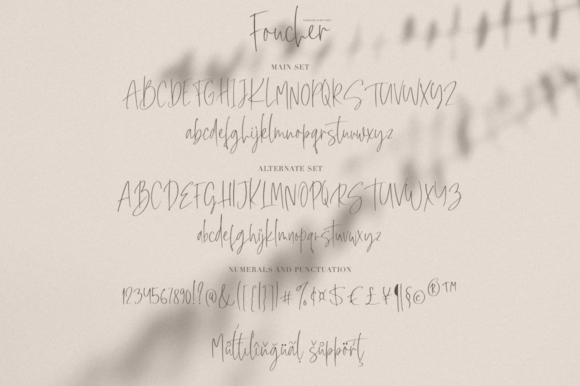 Foucher
MAIN SET
ABCDEFGHIJKLMNOPQRSTUVWXYZ
abcdefghijklmnopqrstuvwxyz
ALTERNATE SET
ABCDEFGHIJKLMNOPQRSTUVWXYZ
abcdefghijklmnopqrstuvwxyz
NUMERALS AND PUNCTUATION
1234567890!?@&([{|}])#%¢¤$€£¥¶§©®™